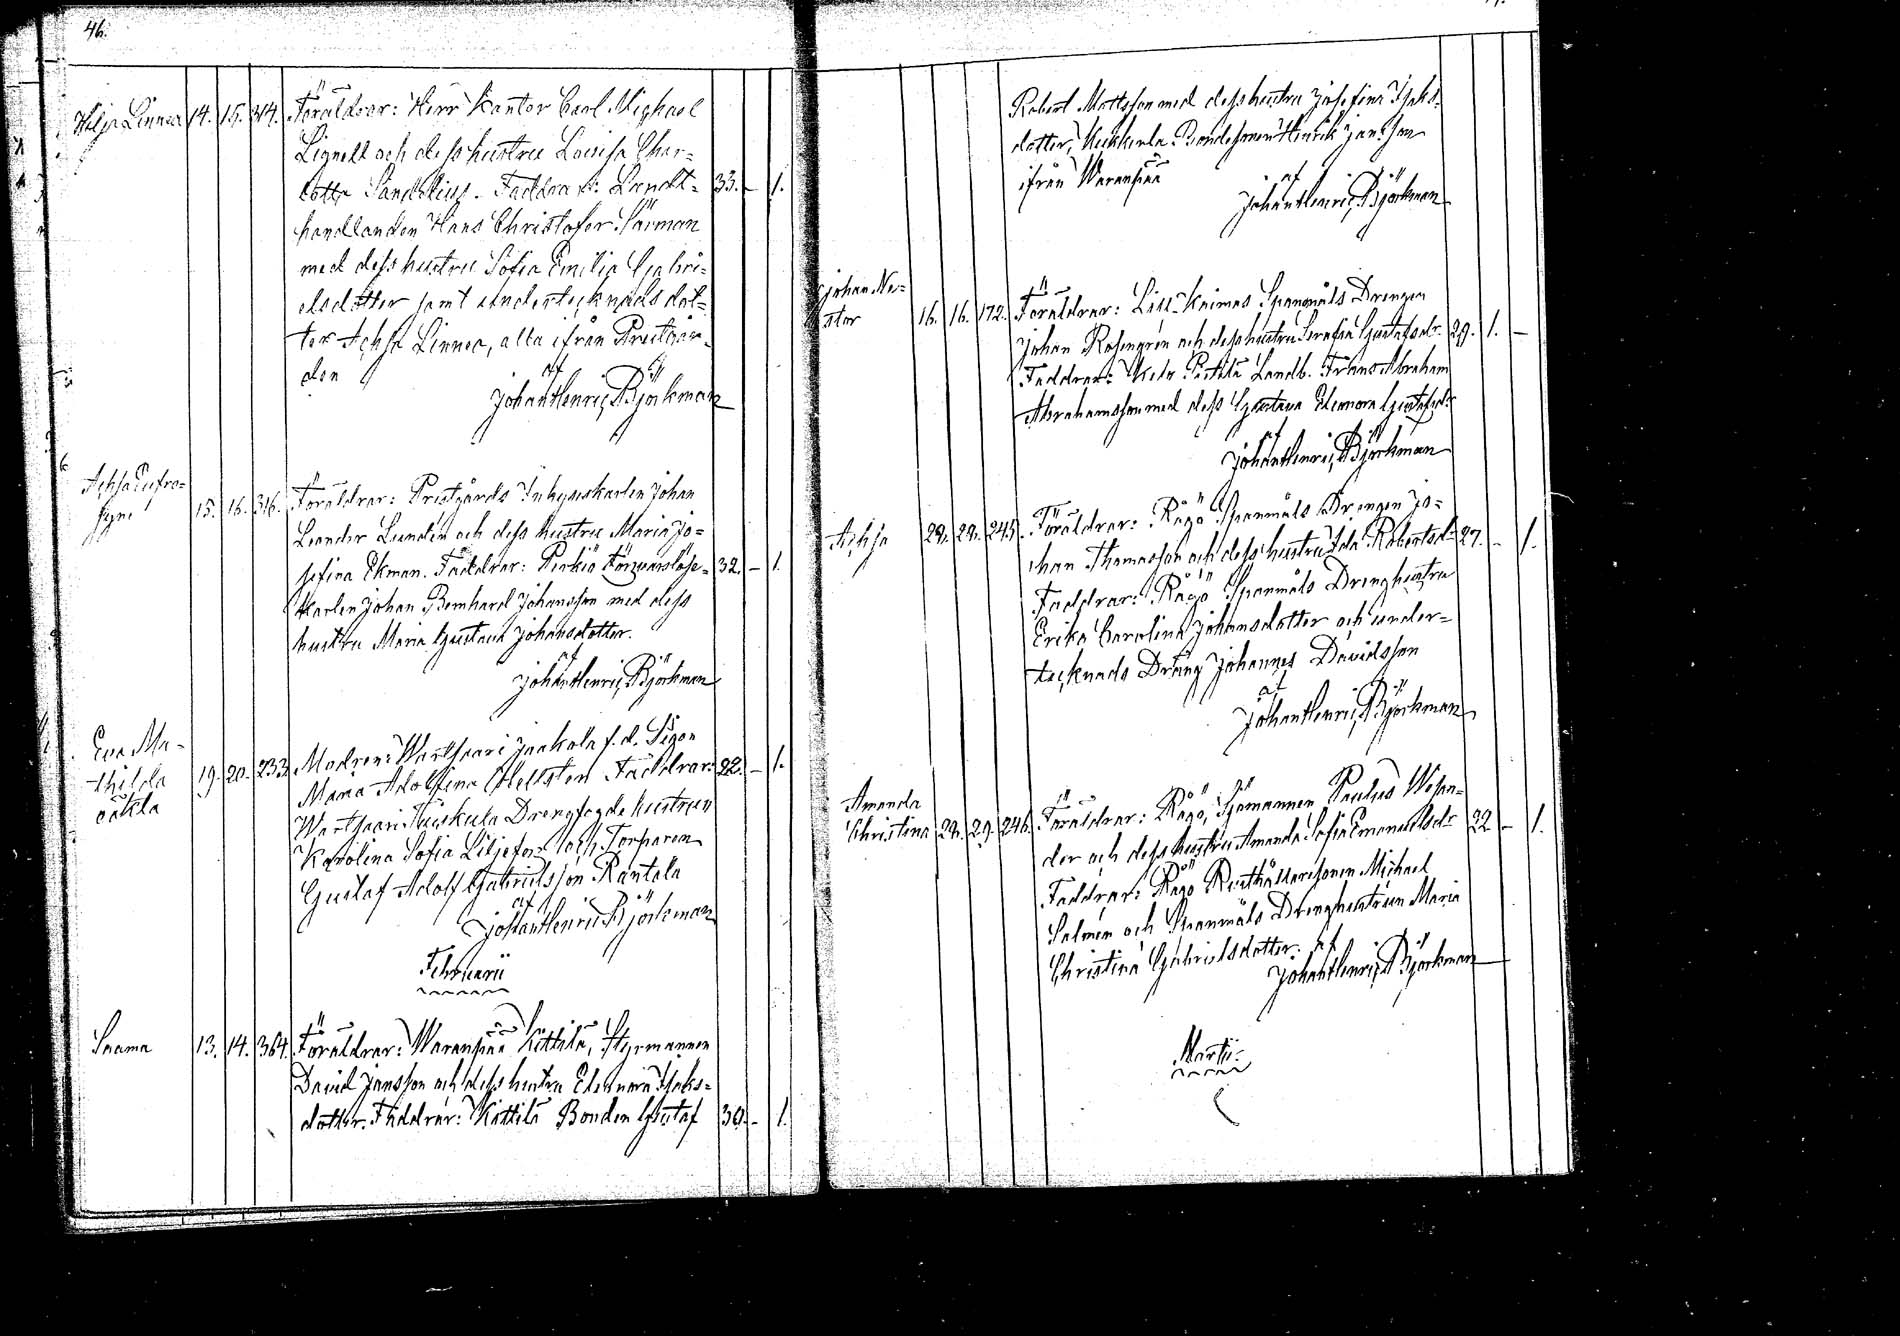 46.
Hilja Linnea 14. 15. 314. Föräldrar: Herr Kantor Carl Michael
Lignell och dess hustru Lovisa Char=
lotta Sandelius. Faddrar: Landt= 33. – 1.
handlanden Hans Christofer Särman
med dess hustru Sofia Emilia Gabri=
elsdotter samt undertecknads dot=
ter Achsa Linnea, alla ifrån Prestgår=
den
af
Johan Henric Björkman
Achsa Eufro=
syne 15. 16. 316. Föräldrar: Prestgårds Inhyseskarlen Johan
Leander Lundén och dess hustru Maria Jo=
sefina Ekman. Faddrar: Pirkiö Försvarslöse= 32. – 1.
karlen Johan Bernhard Johansson med dess
hustru Maria Gustava Johansdotter.
af
Johan Henric Björkman
Eva Ma=
thilda 19. 20. 233. Modren: Wartsaari Jaakola f. d. Pigan
oäkta Maria Adolfina Hellsten Faddrar: 22. – 1.
Wartsaari Drengfogde hustrun
Karolina Sofia Liljefors och Torparen
Gustaf Adolf Gabrielsson Rantala
af
Johan Henric Björkman
Februarii
Saama 13. 14. 364. Föräldrar: Waranpää Kittilä, Styrmannen
David Jansson och dess hustru Eleonora Isaks=
dotter. Faddrar: Kittilä Bonden Gustaf 30. – 1.
Robert Mattsson med dess hustru Josefina Isaks=
dotter, Kukkenla Bondesonen Henrik Jansson
ifrån Waranpää
af
Johan Henric Björkman
Johan Ne=
stor 16. 16. 172. Föräldrar: Lill-Kaimas Spanmåls Drengen
Johan Rosengrén och dess hustru Serafia Gustafsdr 29. 1. –
Faddrar: Pietilä Landb. Frans Abraham
Abrahamsson med dess Gustava Eleonora Gustafsdr
af
Johan Henric Björkman
Achsa 28. 28. 245. Föräldrar: Rågö Spanmåls Drengen Jo=
han Thomasson och dess hustru Ida Robertsdr 27. – 1.
Faddrar: Rågö Spanmåls Drenghustru
Erika Carolina Johansdotter och under=
tecknads Dräng Johannes Davidsson
af
Johan Henric Björkman
Amanda
Christina 28. 29. 246. Föräldrar: Rågö, Sjömannen Paulus Wesan=
der och dess hustru Amanda Sofia Emanuelsdr 22 – 1.
Faddrar: Rågö Rusthållaresonen Michael
Salmén och Spanmåls Drenghustrun Maria
Christina Gabrielsdotter. af
Johan Henric Björkman
Martii